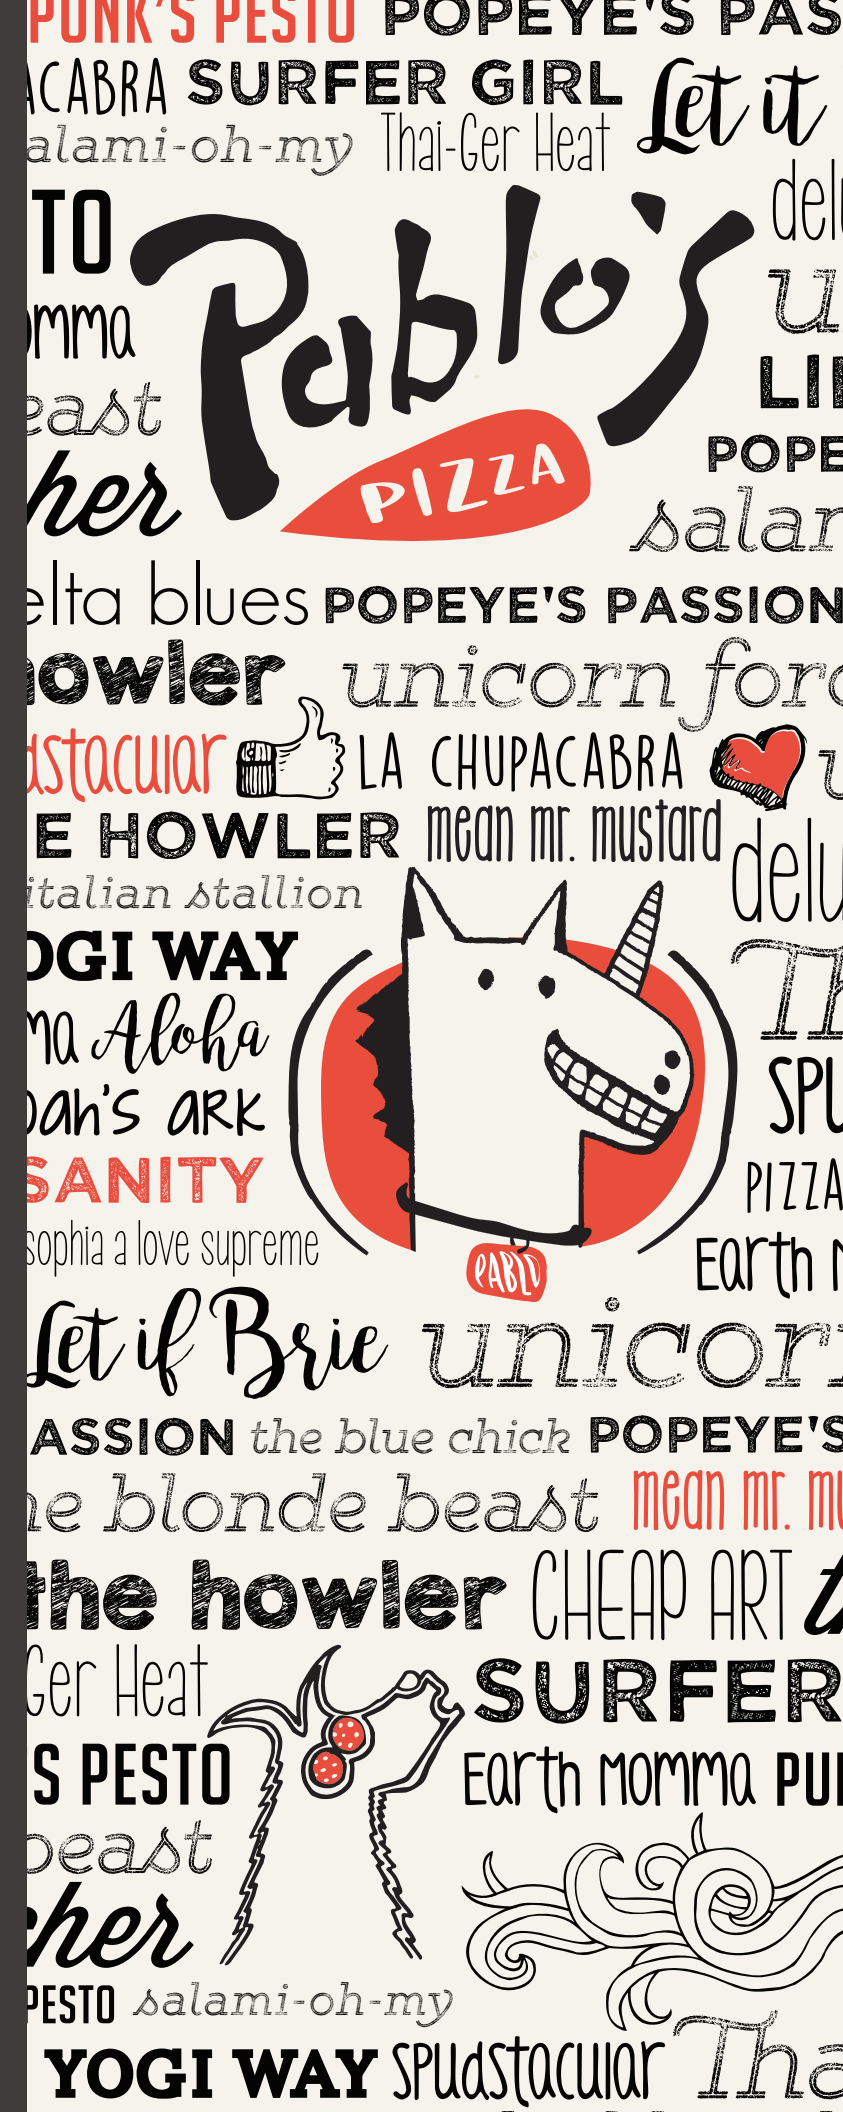 PUNK'S PESTO POPEYE'S PAS
ACABRA SURFER GIRL Let it
alami-oh-my Thai-Ger Heat
delu
TO
Pablo's
PIZZA
omma
u
east
LI
POPE
her
salam
elta blues POPEYE'S PASSION
howler unicorn forc
dstacular LA CHUPACABRA u
E HOWLER mean mr. mustard
delu
italian stallion
OGI WAY
Th
ma Aloha
SPU
oah's ark
SANITY
PIZZA
sophia a love supreme
Earth M
PABLO
Let if Brie unicorn
ASSION the blue chick POPEYE'S
he blonde beast mean mr. mu
the howler CHEAP ART th
Ger Heat
SURFER
S PESTO
Earth Momma PU
beast
cher
PESTO salami-oh-my
YOGI WAY Spudstacular Tha